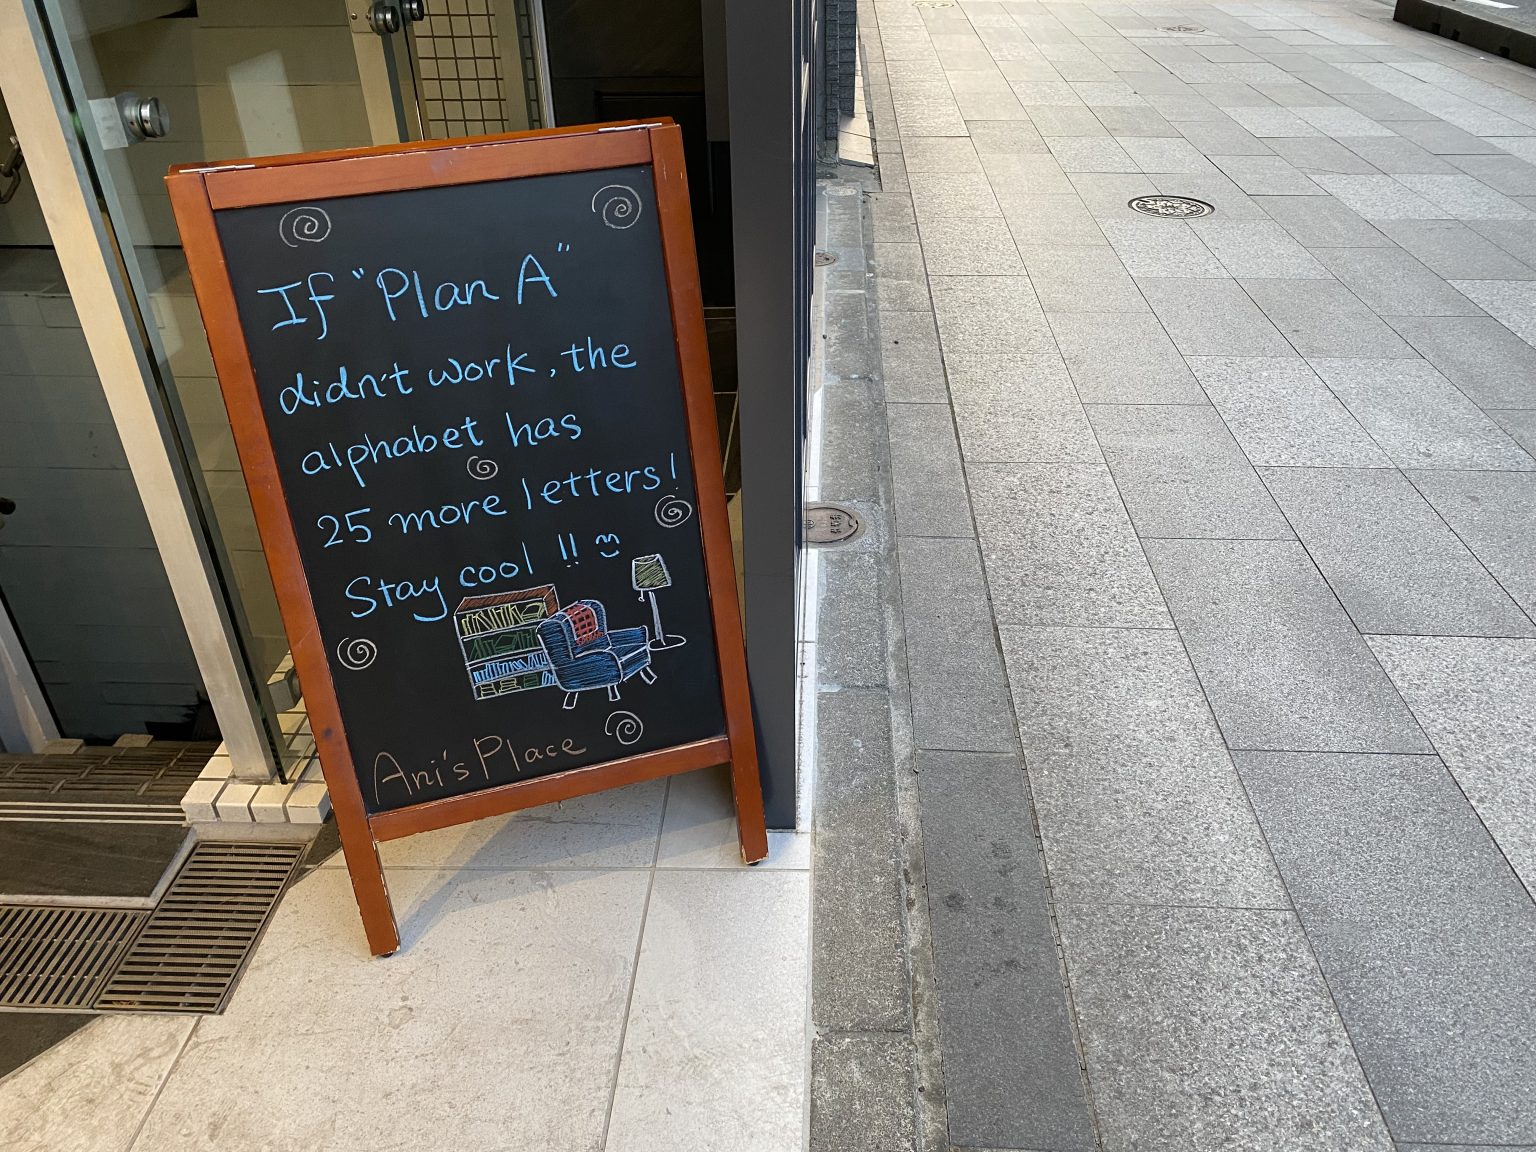 If "Plan A"
didn't work, the
alphabet has
25 more letters!
Stay cool !!
Ani's Place